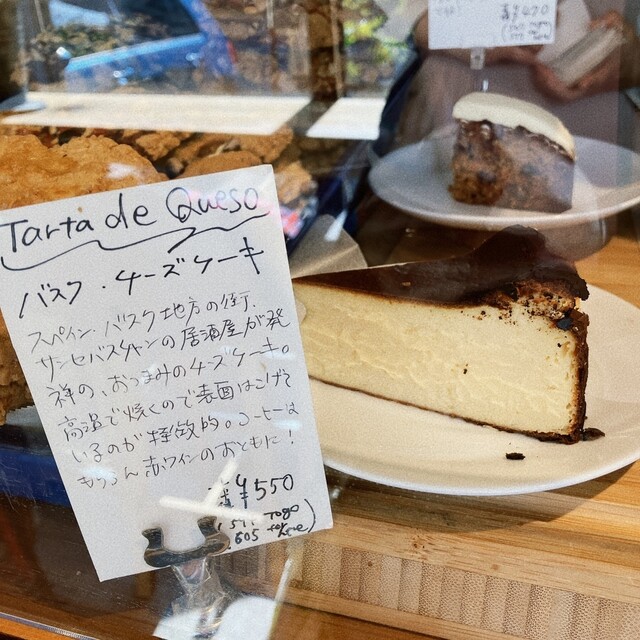 ¥470
Tarta de Queso
バスク・チーズケーキ
スペイン・バスク地方の街、
サンセバスチャンの居酒屋が発
祥の、おつまみのチーズケーキ。
高温で焼くので表面はこげて
いるのが特徴的。コーヒーは
もちろん赤ワインのおともに!
¥550
togo
605